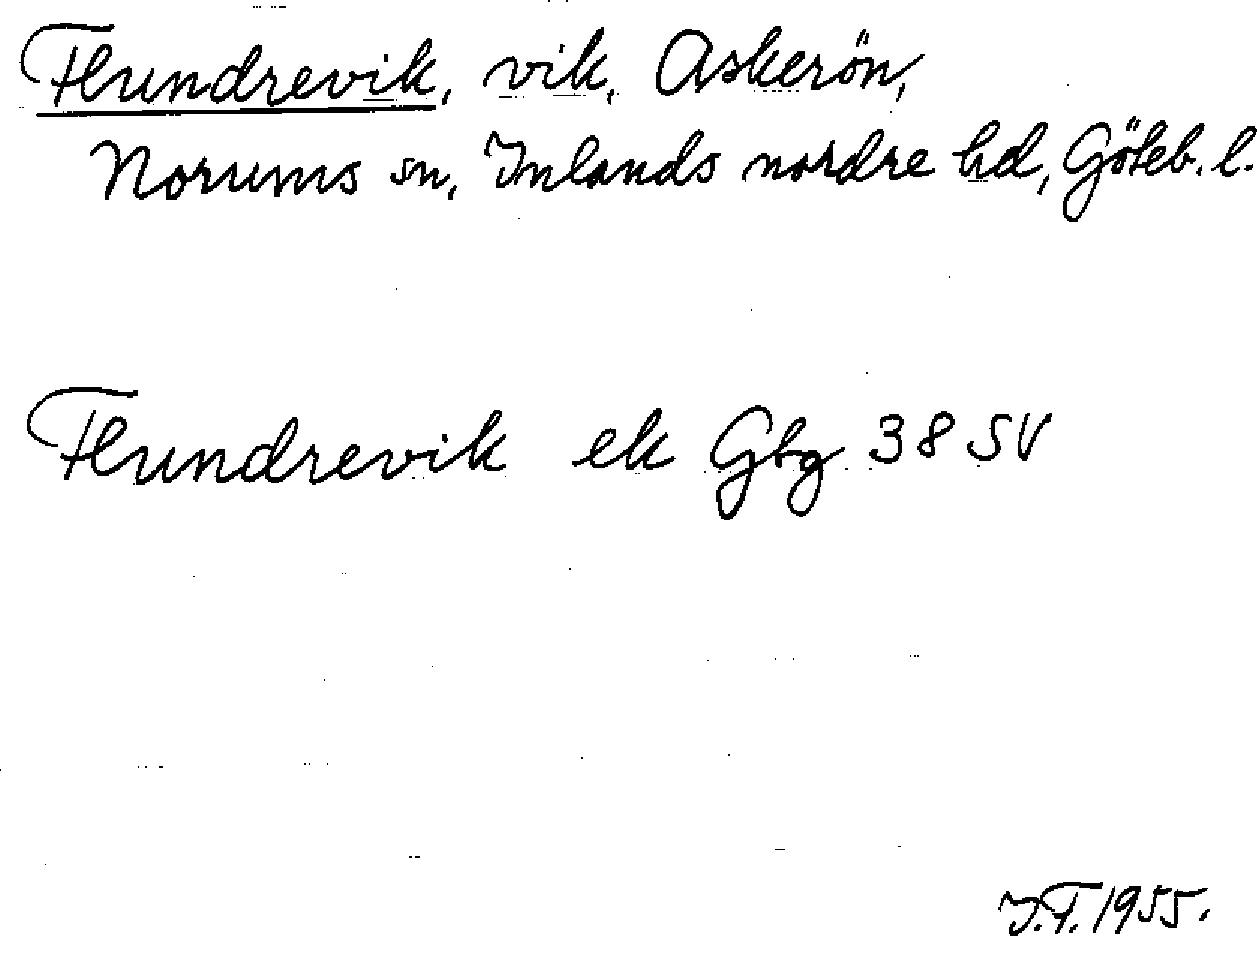 Flundrevik, vik, Askerön,
Norums sn, Inlands nordre hd, Göteb. l.
Flundrevik ek Gbg 38 SV
J.F. 1955.